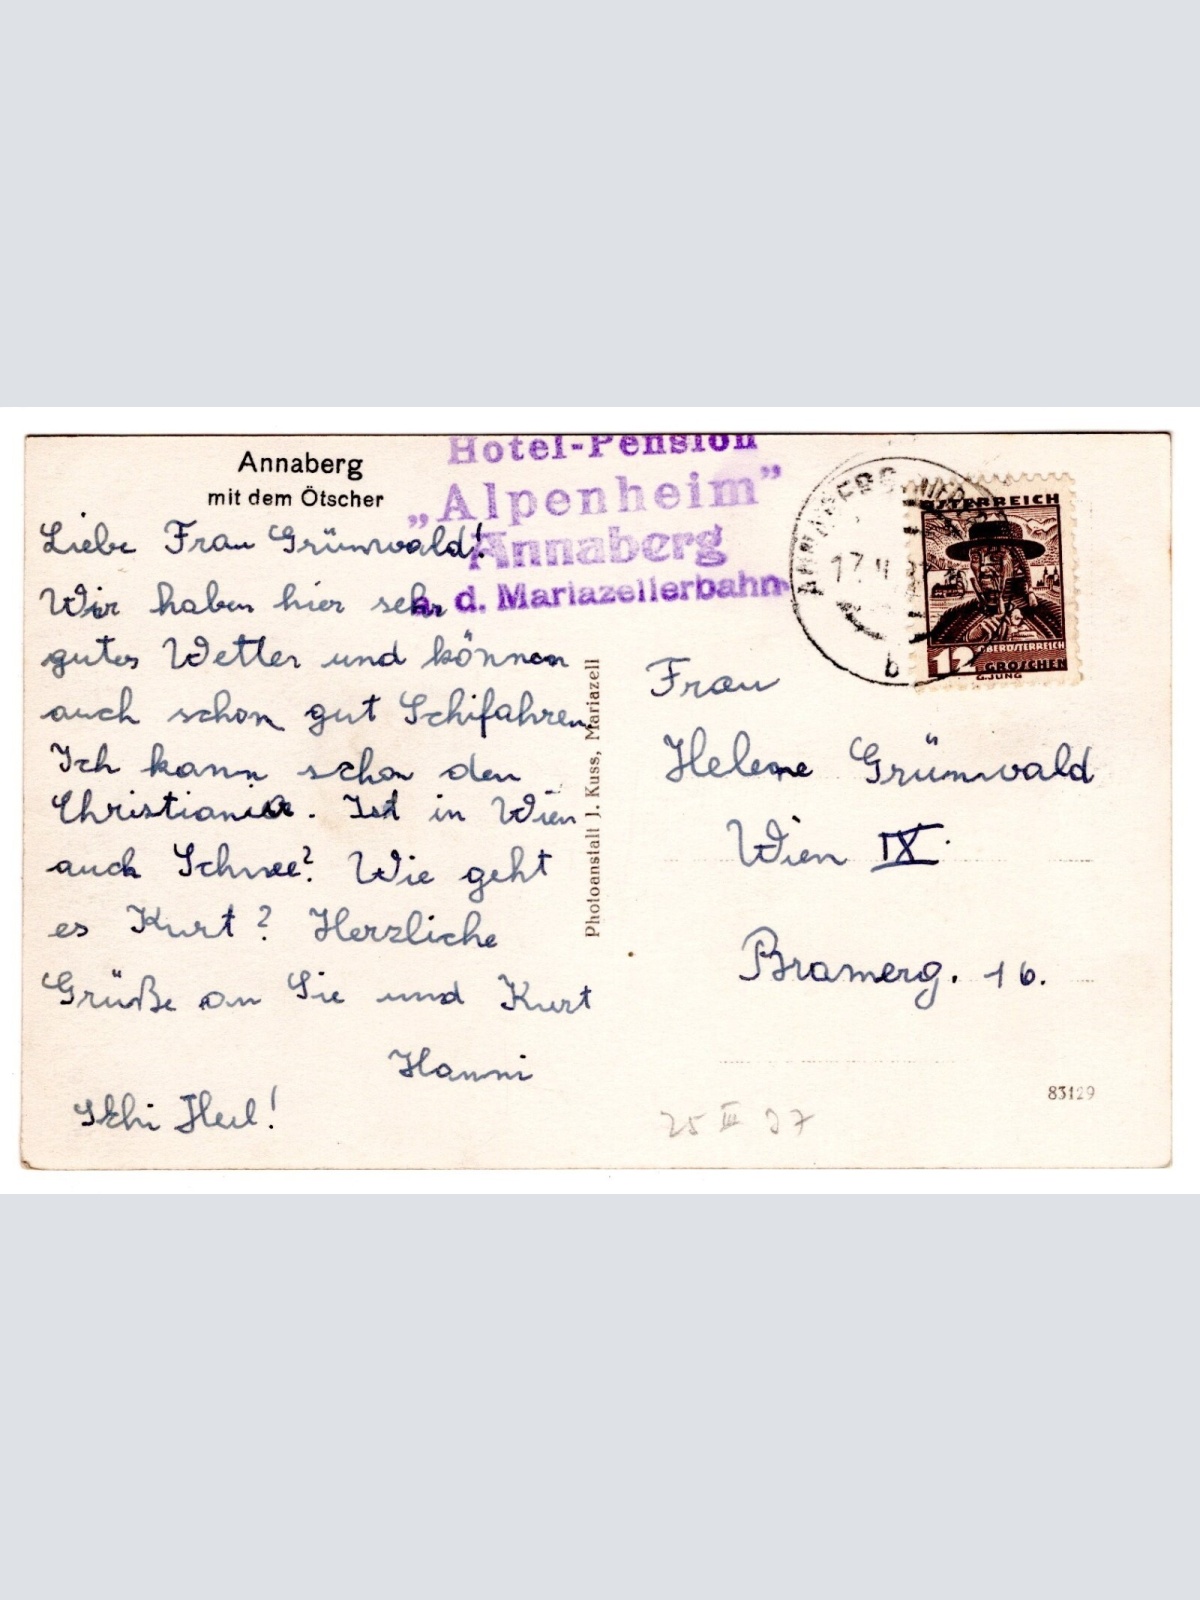 Annaberg
mit dem Ötscher
Liebe Frau Grünwald!
Wir haben hier sehr
gutes Wetter und können
auch schon gut Schifahren.
Ich kann schon den
Christiania. Ist in Wien
auch Schnee? Wie geht
es Kurt? Herzliche
Grüße an Sie und Kurt
Hanni
Schi Heil!
Hotel-Pension
„Alpenheim”
Annaberg
a. d. Mariazellerbahn
Photoanstalt J. Kuss, Mariazell
ANNABERG
17. II.
b
ÖSTERREICH
OBERÖSTERREICH
12 GROSCHEN
G.JUNG
Frau
Helene Grünwald
Wien IX.
Bramerg. 16.
83129
25 III 37